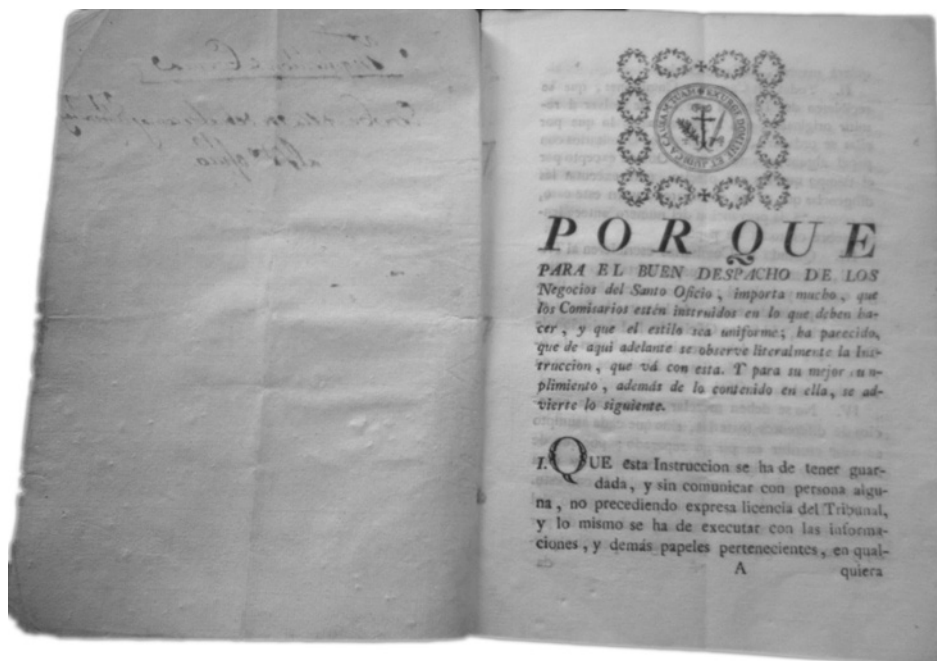 EXURGE DOMINE ET JUDICA CAUSAM TUAM
PORQUE
PARA EL BUEN DESPACHO DE LOS
Negocios del Santo Oficio, importa mucho, que
los Comisarios estén instruidos en lo que deben ha-
cer, y que el estilo sea uniforme; ha parecido,
que de aqui adelante se observe literalmente la Ins-
truccion, que vá con esta. Y para su mejor cum-
plimiento, además de lo contenido en ella, se ad-
vierte lo siguiente.
I. QUE esta Instruccion se ha de tener guar-
dada, y sin comunicar con persona algu-
na, no precediendo expresa licencia del Tribunal,
y lo mismo se ha de executar con las informa-
ciones, y demás papeles pertenecientes, en qual-
A quiera